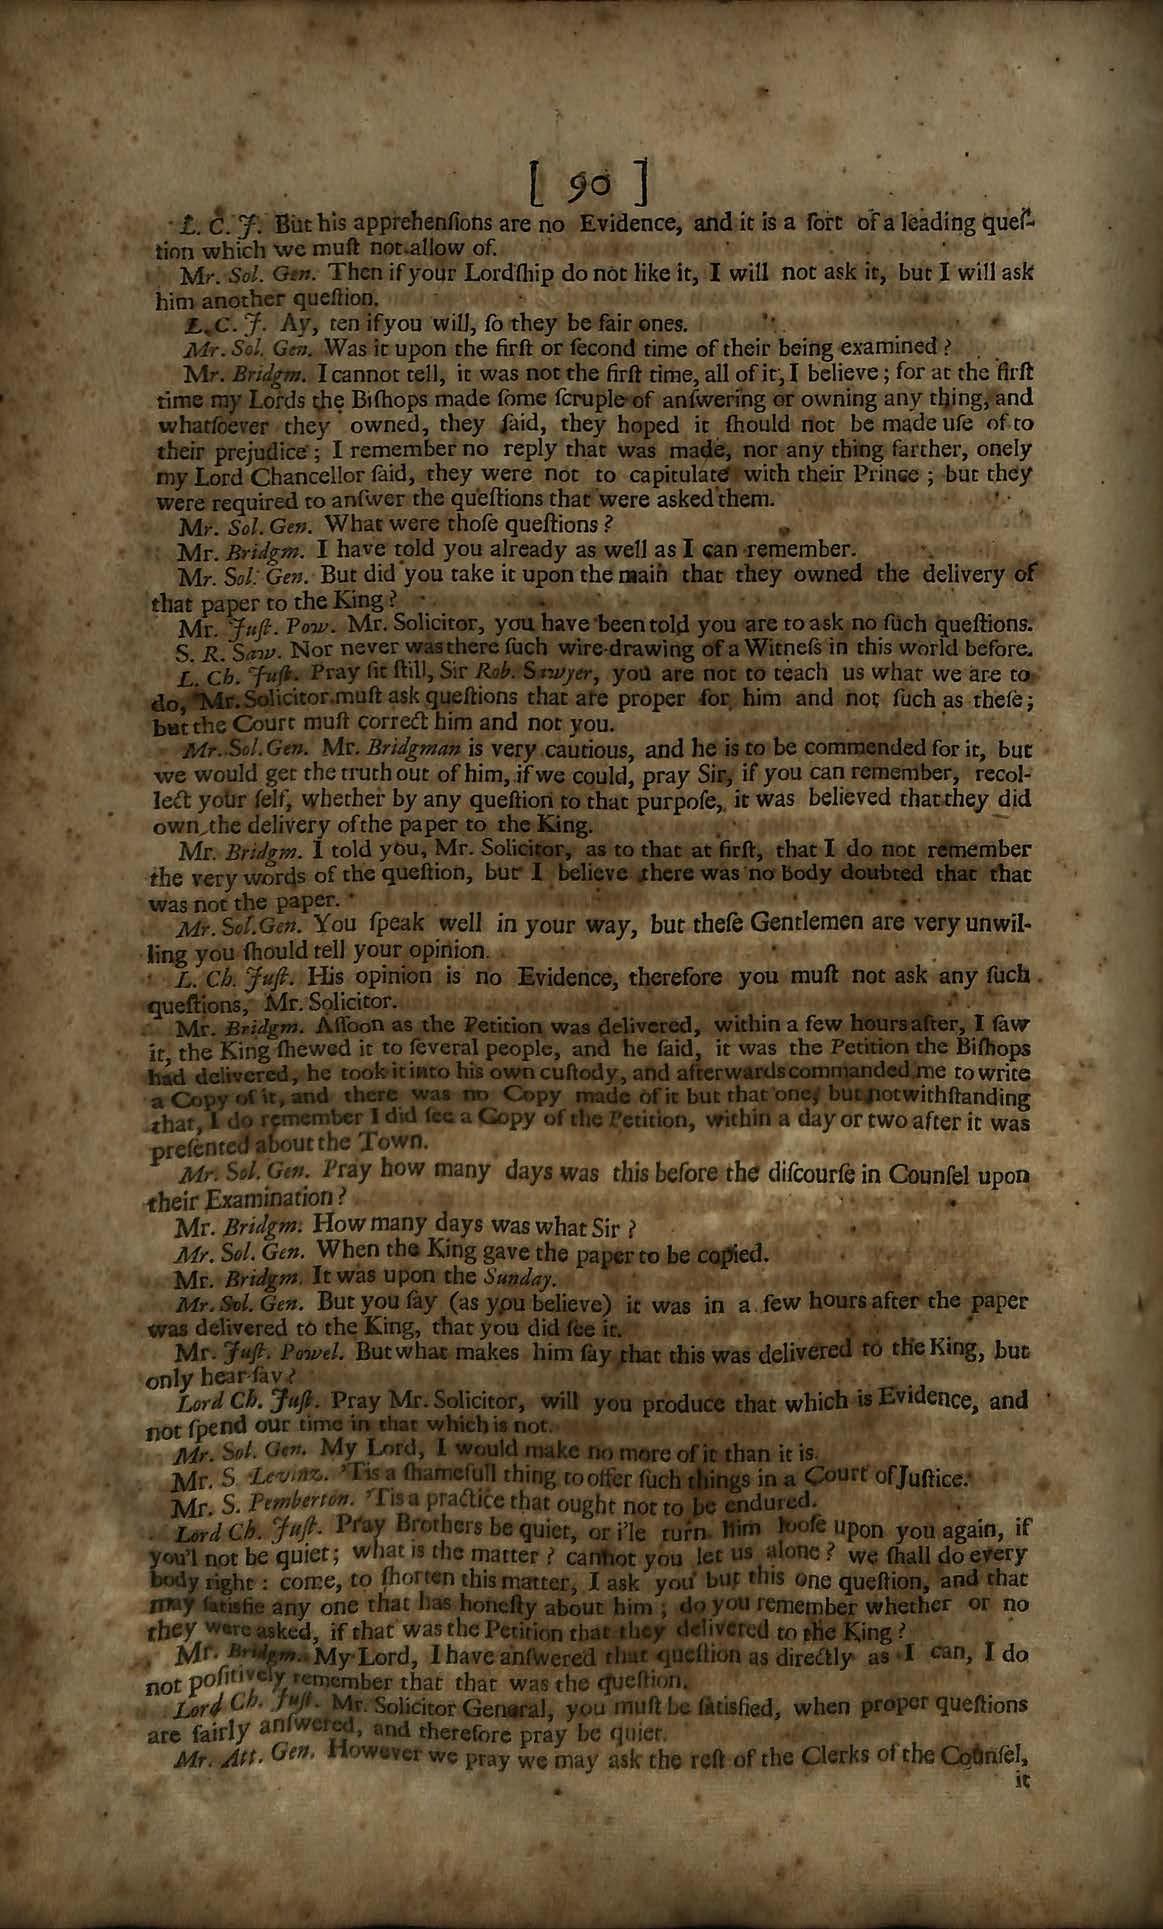 [ 90 ]
L. C. J. But his apprehenſions are no Evidence, and it is a ſort of a leading queſ-
tion which we muſt not allow of.
Mr. Sol. Gen. Then if your Lordſhip do not like it, I will not ask it, but I will ask
him another queſtion.
L. C. J. Ay, ten if you will, ſo they be fair ones.
Mr. Sol. Gen. Was it upon the firſt or ſecond time of their being examined?
Mr. Bridgm. I cannot tell, it was not the firſt time, all of it, I believe; for at the firſt
time my Lords the Biſhops made ſome ſcruple of anſwering or owning any thing, and
whatſoever they owned, they ſaid, they hoped it ſhould not be made uſe of to
their prejudice; I remember no reply that was made, nor any thing farther, onely
my Lord Chancellor ſaid, they were not to capitulate with their Prince; but they
were required to anſwer the queſtions that were asked them.
Mr. Sol. Gen. What were thoſe queſtions?
Mr. Bridgm. I have told you already as well as I can remember.
Mr. Sol. Gen. But did you take it upon the main that they owned the delivery of
that paper to the King?
Mr. Juſt. Pow. Mr. Solicitor, you have been told you are to ask no ſuch queſtions.
S. R. Saw. Nor never was there ſuch wire-drawing of a Witneſs in this world before.
L. Ch. Juſt. Pray ſit ſtill, Sir Rob. Sawyer, you are not to teach us what we are to
do, Mr. Solicitor muſt ask queſtions that are proper for him and not ſuch as theſe;
but the Court muſt correct him and not you.
Mr. Sol. Gen. Mr. Bridgman is very cautious, and he is to be commended for it, but
we would get the truth out of him, if we could, pray Sir, if you can remember, recol-
lect your ſelf, whether by any queſtion to that purpoſe, it was believed that they did
own the delivery of the paper to the King.
Mr. Bridgm. I told you, Mr. Solicitor, as to that at firſt, that I do not remember
the very words of the queſtion, but I believe there was no body doubted that that
was not the paper.
Mr. Sol. Gen. You ſpeak well in your way, but theſe Gentlemen are very unwil-
ling you ſhould tell your opinion.
L. Ch. Juſt. His opinion is no Evidence, therefore you muſt not ask any ſuch
queſtions, Mr. Solicitor.
Mr. Bridgm. Aſſoon as the Petition was delivered, within a few hours after, I ſaw
it, the King ſhewed it to ſeveral people, and he ſaid, it was the Petition the Biſhops
had delivered, he took it into his own cuſtody, and afterwards commanded me to write
a Copy of it, and there was no Copy made of it but that one; but notwithſtanding
that, I do remember I did ſee a Copy of the Petition, within a day or two after it was
preſented about the Town.
Mr. Sol. Gen. Pray how many days was this before the diſcourſe in Counſel upon
their Examination?
Mr. Bridgm. How many days was what Sir?
Mr. Sol. Gen. When the King gave the paper to be copied.
Mr. Bridgm. It was upon the Sunday.
Mr. Sol. Gen. But you ſay (as you believe) it was in a few hours after the paper
was delivered to the King, that you did ſee it.
Mr. Juſt. Powel. But what makes him ſay that this was delivered to the King, but
only hear-ſay?
Lord Ch. Juſt. Pray Mr. Solicitor, will you produce that which is Evidence, and
not ſpend our time in that which is not.
Mr. Sol. Gen. My Lord, I would make no more of it than it is.
Mr. S. Levinz. 'Tis a ſhamefull thing to offer ſuch things in a Court of Juſtice.
Mr. S. Pemberton. 'Tis a practice that ought not to be endured.
Lord Ch. Juſt. Pray Brothers be quiet, or i'le turn him looſe upon you again, if
you'l not be quiet; what is the matter? cannot you let us alone? we ſhall do every
body right: come, to ſhorten this matter, I ask you but this one queſtion, and that
may ſatisfie any one that has honeſty about him; do you remember whether or no
they were asked, if that was the Petition that they delivered to the King?
Mr. Bridgm. My Lord, I have anſwered that queſtion as directly as I can, I do
not poſitively remember that that was the queſtion.
Lord Ch. Juſt. Mr. Solicitor General, you muſt be ſatisfied, when proper queſtions
are fairly anſwered, and therefore pray be quiet.
Mr. Att. Gen. However we pray we may ask the reſt of the Clerks of the Counſel,
it